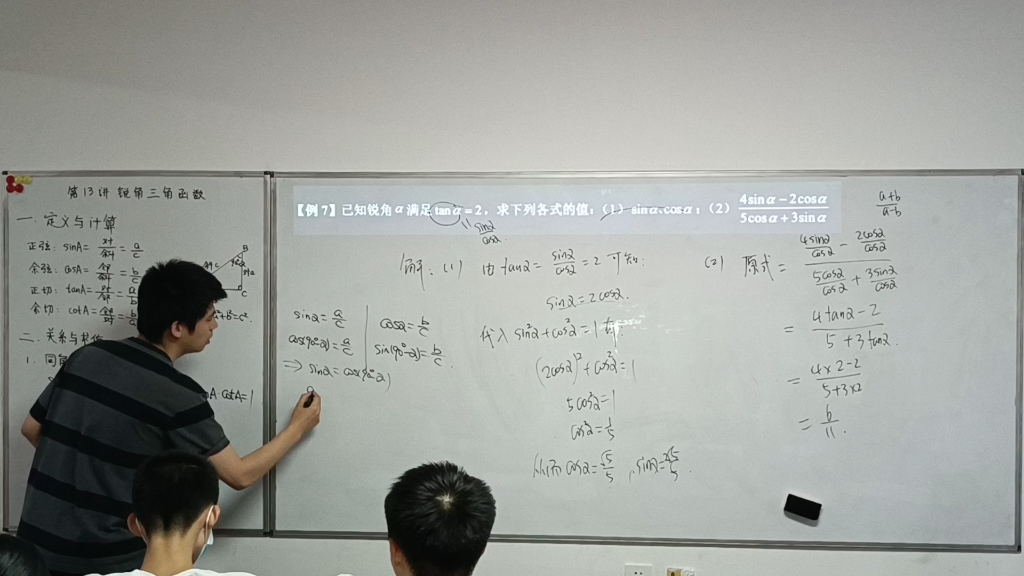 第13讲 锐角三角函数
一. 定义与计算
正弦: sinA = 对/斜 = a/c
余弦: cosA = 邻/斜 = b/c
正切: tanA = 对/邻 = a/b
余切: cotA = 邻/对 = b/
B
C
二. 关系与
1. 同角
A·cotA=1
【例 7】已知锐角α满足tanα=2，求下列各式的值：(1) sinα、cosα；(2) (4sinα−2cosα)/(5cosα+3sinα)
sinα/cosα
(a+b)/(a-b)
sinα = a/c
cosα = b/c
cos(90°-α) = a/c
sin(90°-α) = b/c
⇒ sinα = cos(90°-α)
解: (1) 由 tanα = sinα/cosα = 2 可知:
sinα = 2cosα.
代入 sin²α + cos²α = 1 有
(2cosα)² + cos²α = 1
5cos²α = 1
cos²α = 1/5
从而 cosα = √5/5, sinα = 2√5/5.
(2) 原式 = (4sinα/cosα − 2cosα/cosα)/(5cosα/cosα + 3sinα/cosα)
= (4tanα − 2)/(5 + 3tanα)
= (4×2−2)/(5+3×2)
= 6/11.